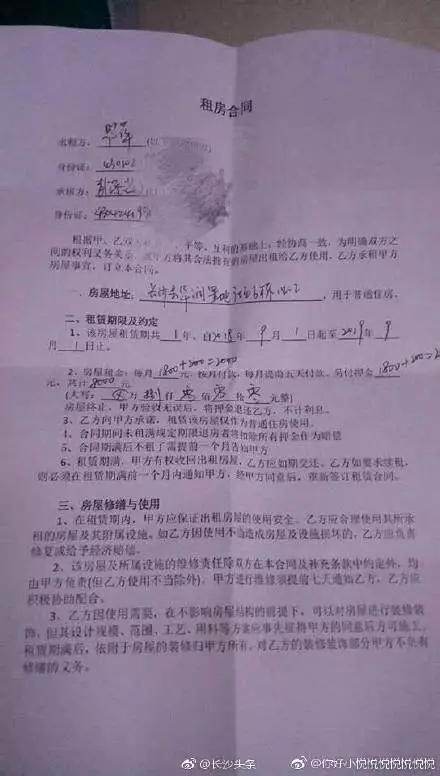 租房合同
出租方:
身份证:
承租方:
身份证:
根据甲、乙双方 平等、互利的基础上,经协商一致,为明确双方之
间的权利义务关系, 甲方将其合法拥有的房屋出租给乙方使用,乙方承租甲方
房屋事宜,订立本合同。
一、房屋地址: ,用于普通住房。
二、租赁期限及约定
1、该房屋租赁期共 1 年。自2018年 9 月 1 日起至2019年 9
月 1 日止。
2、房屋租金:每月 1800+200=2000 元。按月付款,每月提前五天付款。另付押金 1800+200=2
元,共计8000元。
房屋终止,甲方验收无误后,将押金退还乙方,不计利息。
3、乙方向甲方承诺,租赁该房屋仅作为普通住房使用。
4、合同期间未租满规定期限退房者将扣除所有押金作为赔偿
5、合同期满后不租了需提前一个月告知甲方
6、租赁期满,甲方有权收回出租房屋,乙方应如期交还。乙方如要求续租,
则必须在租赁期满前一个月内通知甲方,经甲方同意后,重新签订租赁合同。
三、房屋修缮与使用
1、在租赁期内,甲方应保证出租房屋的使用安全。乙方应合理使用其所承
租的房屋及其附属设施。如乙方因使用不当造成房屋及设施损坏的,乙方应负责
修复或给予经济赔偿。
2、该房屋及所属设施的维修责任除双方在本合同及补充条款中约定外,均
由甲方负责(但乙方使用不当除外)。甲方进行维修须提前七天通知乙方,乙方应
积极协助配合。
3、乙方因使用需要,在不影响房屋结构的前提下,可以对房屋进行装修装
饰,但其设计规模、范围、工艺、用料等方案应事先征得甲方的同意后方可施工。
租赁期满后,依附于房屋的装修归甲方所有。对乙方的装修装饰部分甲方不负有
修缮的义务。
@长沙头条
@你好小悦悦悦悦悦悦悦悦